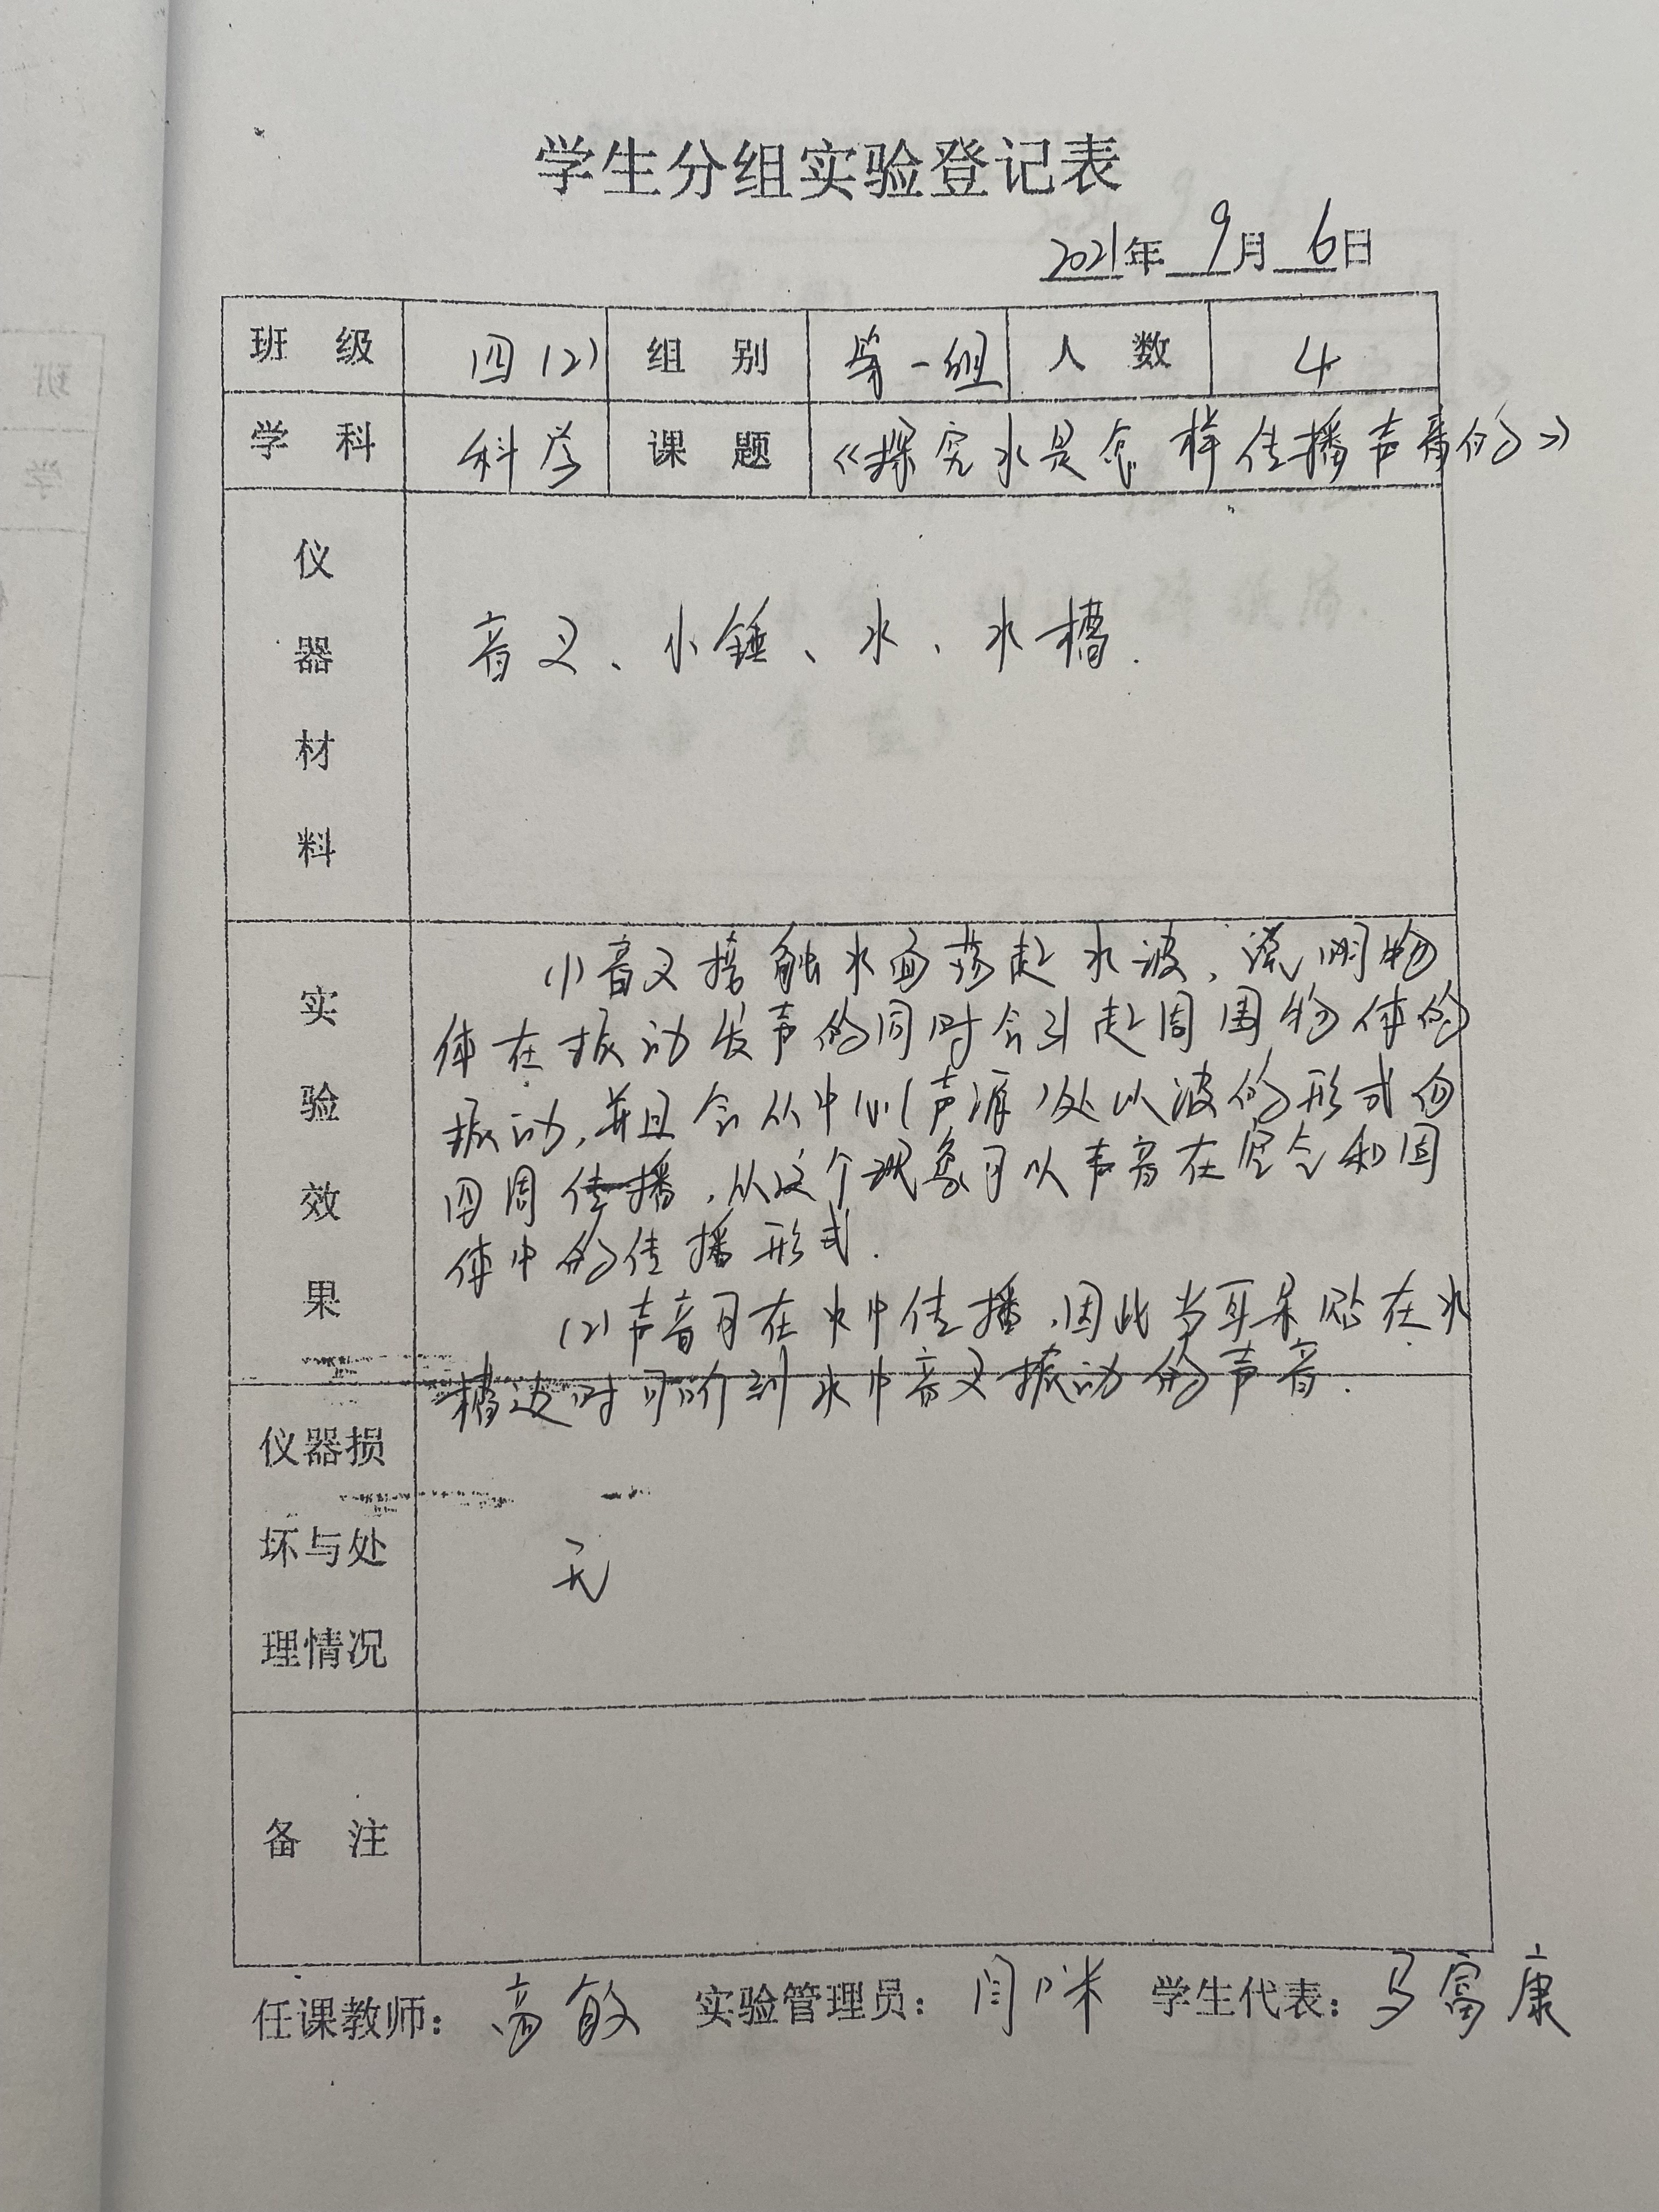 学生分组实验登记表
2021年 9月 6日
班 级 四(2) 组 别 第一组 人 数 4
学 科 科学 课 题 《探究水是怎样传播声音的》
仪器材料
音叉、小锤、水、水槽.
实验效果
(1)音叉接触水面荡起水波,说明物
体在振动发声的同时会引起周围物体的
振动,并且会从中心(声源)处以波的形式向
四周传播,从这个现象可以声音在空气和固
体中的传播形式.
(2)声音可在水中传播,因此当耳朵贴在水
槽边时可听到水中音叉振动的声音.
仪器损
坏与处
理情况
无
备 注
任课教师: 高敏 实验管理员: 闫 学生代表: 马富康
班
学